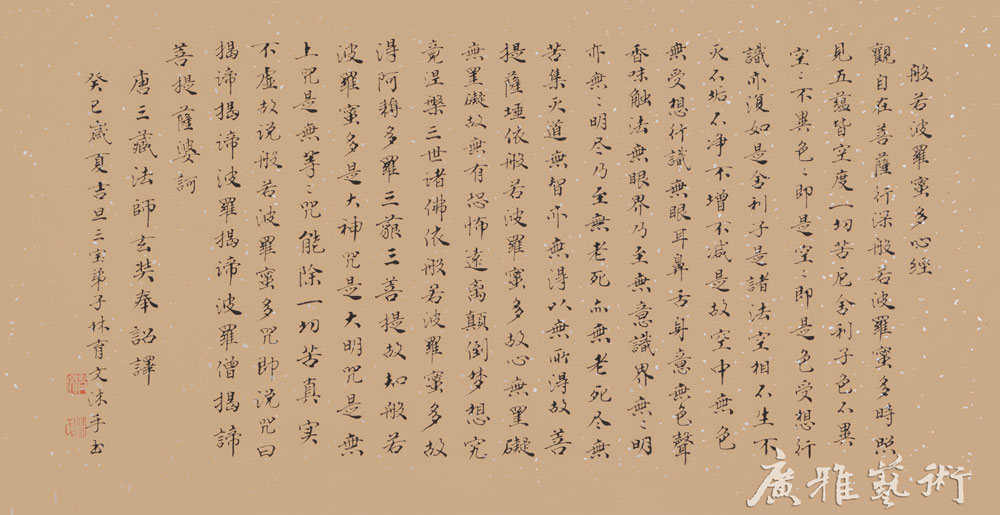 般若波羅蜜多心經
觀自在菩薩行深般若波羅蜜多時照
見五蘊皆空度一切苦厄舍利子色不異
空〻不異色〻即是空〻即是色受想行
識亦復如是舍利子是諸法空相不生不
灭不垢不净不增不减是故空中無色
無受想行識無眼耳鼻舌身意無色聲
香味触法無眼界乃至無意識界無〻明
亦無〻明尽乃至無老死亦無老死尽無
苦集灭道無智亦無得以無所得故菩
提薩埵依般若波羅蜜多故心無罣礙
無罣礙故無有恐怖遠离顛倒梦想究
竟涅槃三世诸佛依般若波羅蜜多故
得阿耨多羅三藐三菩提故知般若
波羅蜜多是大神咒是大明咒是無
上咒是無等〻咒能除一切苦真实
不虛故说般若波羅蜜多咒即说咒曰
揭諦揭諦波羅揭諦波羅僧揭諦
菩提薩婆訶
唐三藏法師玄奘奉詔譯
癸巳歲夏吉旦三宝弟子林育文沐手书
廣雅藝術